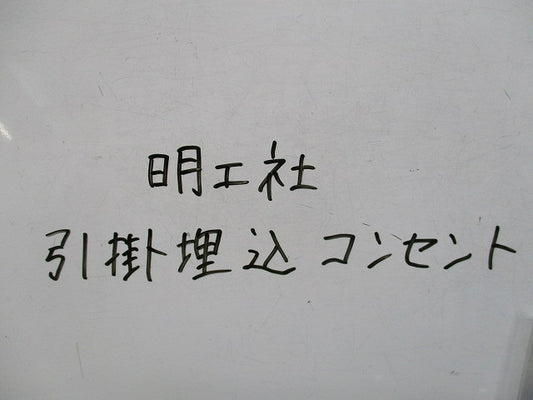 明工社
引掛埋込コンセント